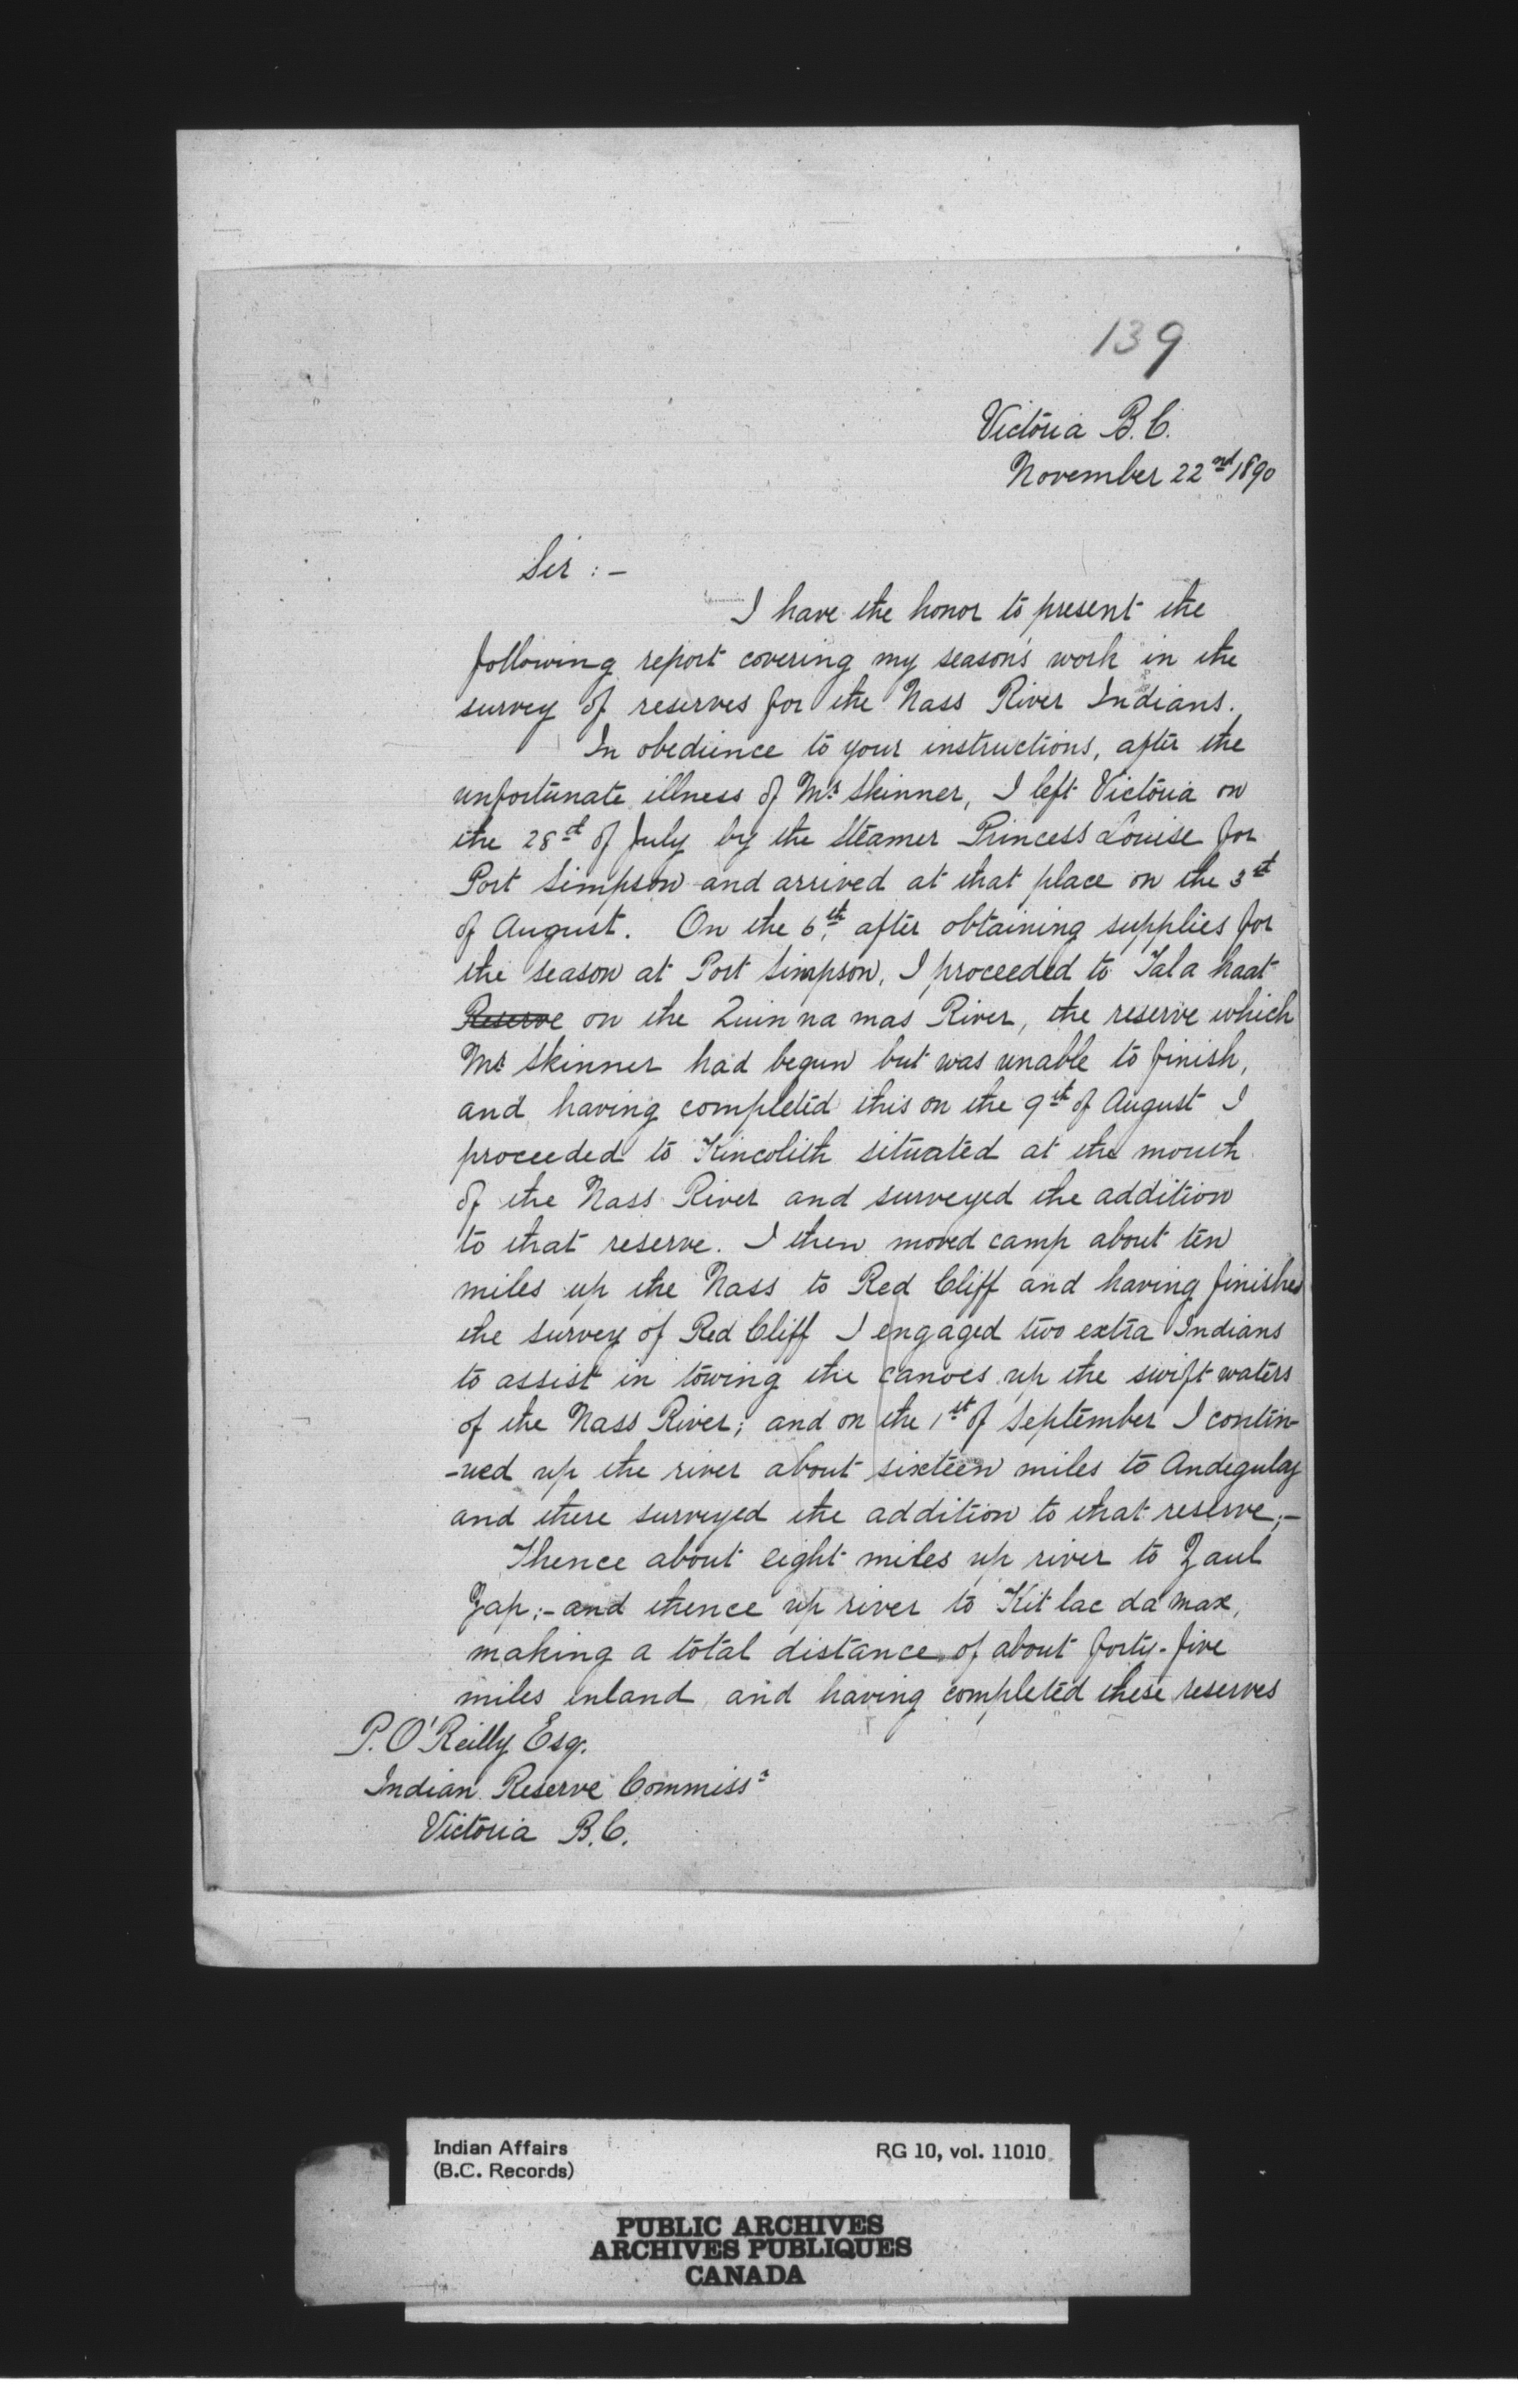 139
Victoria B.C.
November 22nd 1890
Sir :-
I have the honor to present the
following report covering my season's work in the
survey of reserves for the Nass River Indians.
In obedience to your instructions, after the
unfortunate illness of Mr. Skinner, I left Victoria on
the 28th of July by the Steamer Princess Louise for
Port Simpson and arrived at that place on the 3rd
of August. On the 6th, after obtaining supplies for
the season at Port Simpson, I proceeded to Tal a haat
Reserve on the Quin na mas River, the reserve which
Mr. Skinner had begun but was unable to finish,
and having completed this on the 9th of August I
proceeded to Kincolith situated at the mouth
of the Nass River and surveyed the addition
to that reserve. I then moved camp about ten
miles up the Nass to Red Cliff and having finished
the survey of Red Cliff I engaged two extra Indians
to assist in towing the canoes up the swift waters
of the Nass River; and on the 1st of September I contin-
-ued up the river about sixteen miles to Andegulay
and there surveyed the addition to that reserve;-
Thence about eight miles up river to Zaul
Zap;- and thence up river to Kit lac da max,
making a total distance of about forty-five
miles inland and having completed these reserves
P. O'Reilly Esq.
Indian Reserve Commissr
Victoria B.C.
Indian Affairs RG 10, vol. 11010
(B.C. Records)
PUBLIC ARCHIVES
ARCHIVES PUBLIQUES
CANADA